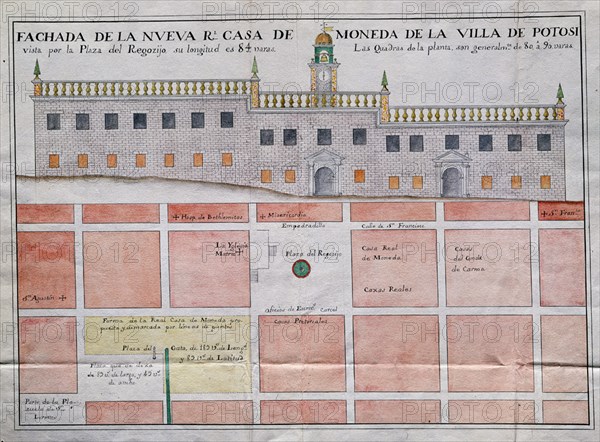 FACHADA DE LA NVEVA Rˡ. CASA DE MONEDA DE LA VILLA DE POTOSI
vista por la Plaza del Regozijo su longitud es 84 varas. Las Quadras de la planta, son generalmᵗᵉ de 80 á 90 varas
Hosp. de Bethlemitas
Misericordia
Sⁿ. Franᶜᵒ
Empedradillo
Calle de Sⁿ Francisco
La Yglecia
Matris
Plaza del Regozijo
Casa Real
de Moneda
Caxas Reales
Casas
del Conde
de Carma
Sⁿ Agustin
Carcel
Casas Pretoriales
Forma de la Real Casa de Moneda
y dimanada por lineas de puntos
Plaza del Gato, de
y 85 vˢ. de Latitud
Plaza que
de largo, y 45 vˢ
de ancho
Parte de la Pla
zuela de Sⁿ
Lorenzo
PHOTO12